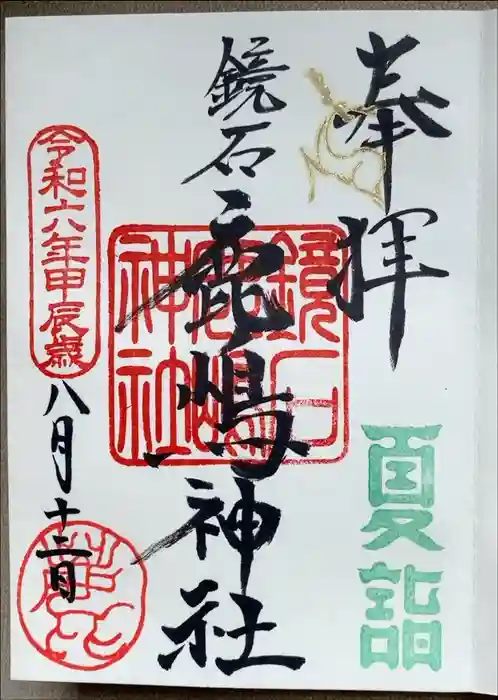 奉拝
夏詣
鏡石
鹿嶋神社
鏡石鹿嶋神社
令和六年甲辰歳
八月十三日